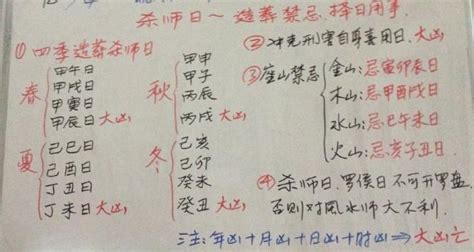 杀师日～造葬禁忌.择日用事.
①四季造葬杀师日
春
甲午日
甲戌日
甲寅日
甲辰日大凶
秋
甲申
甲子
丙辰
丙戌大凶
夏
己巳日
己酉日
丁丑日
丁未日大凶
冬
己亥
己卯
癸未
癸丑大凶
②冲克刑害自身喜用日.大凶
③座山禁忌
金山:忌寅卯辰日
木山:忌甲酉戌日
水山:忌巳午未日
火山:忌亥子丑日.
④杀师日.罗侯日不可开罗盘.
否则对风水师大不利.
注:年凶+月凶+日凶+时凶⇒大凶亡